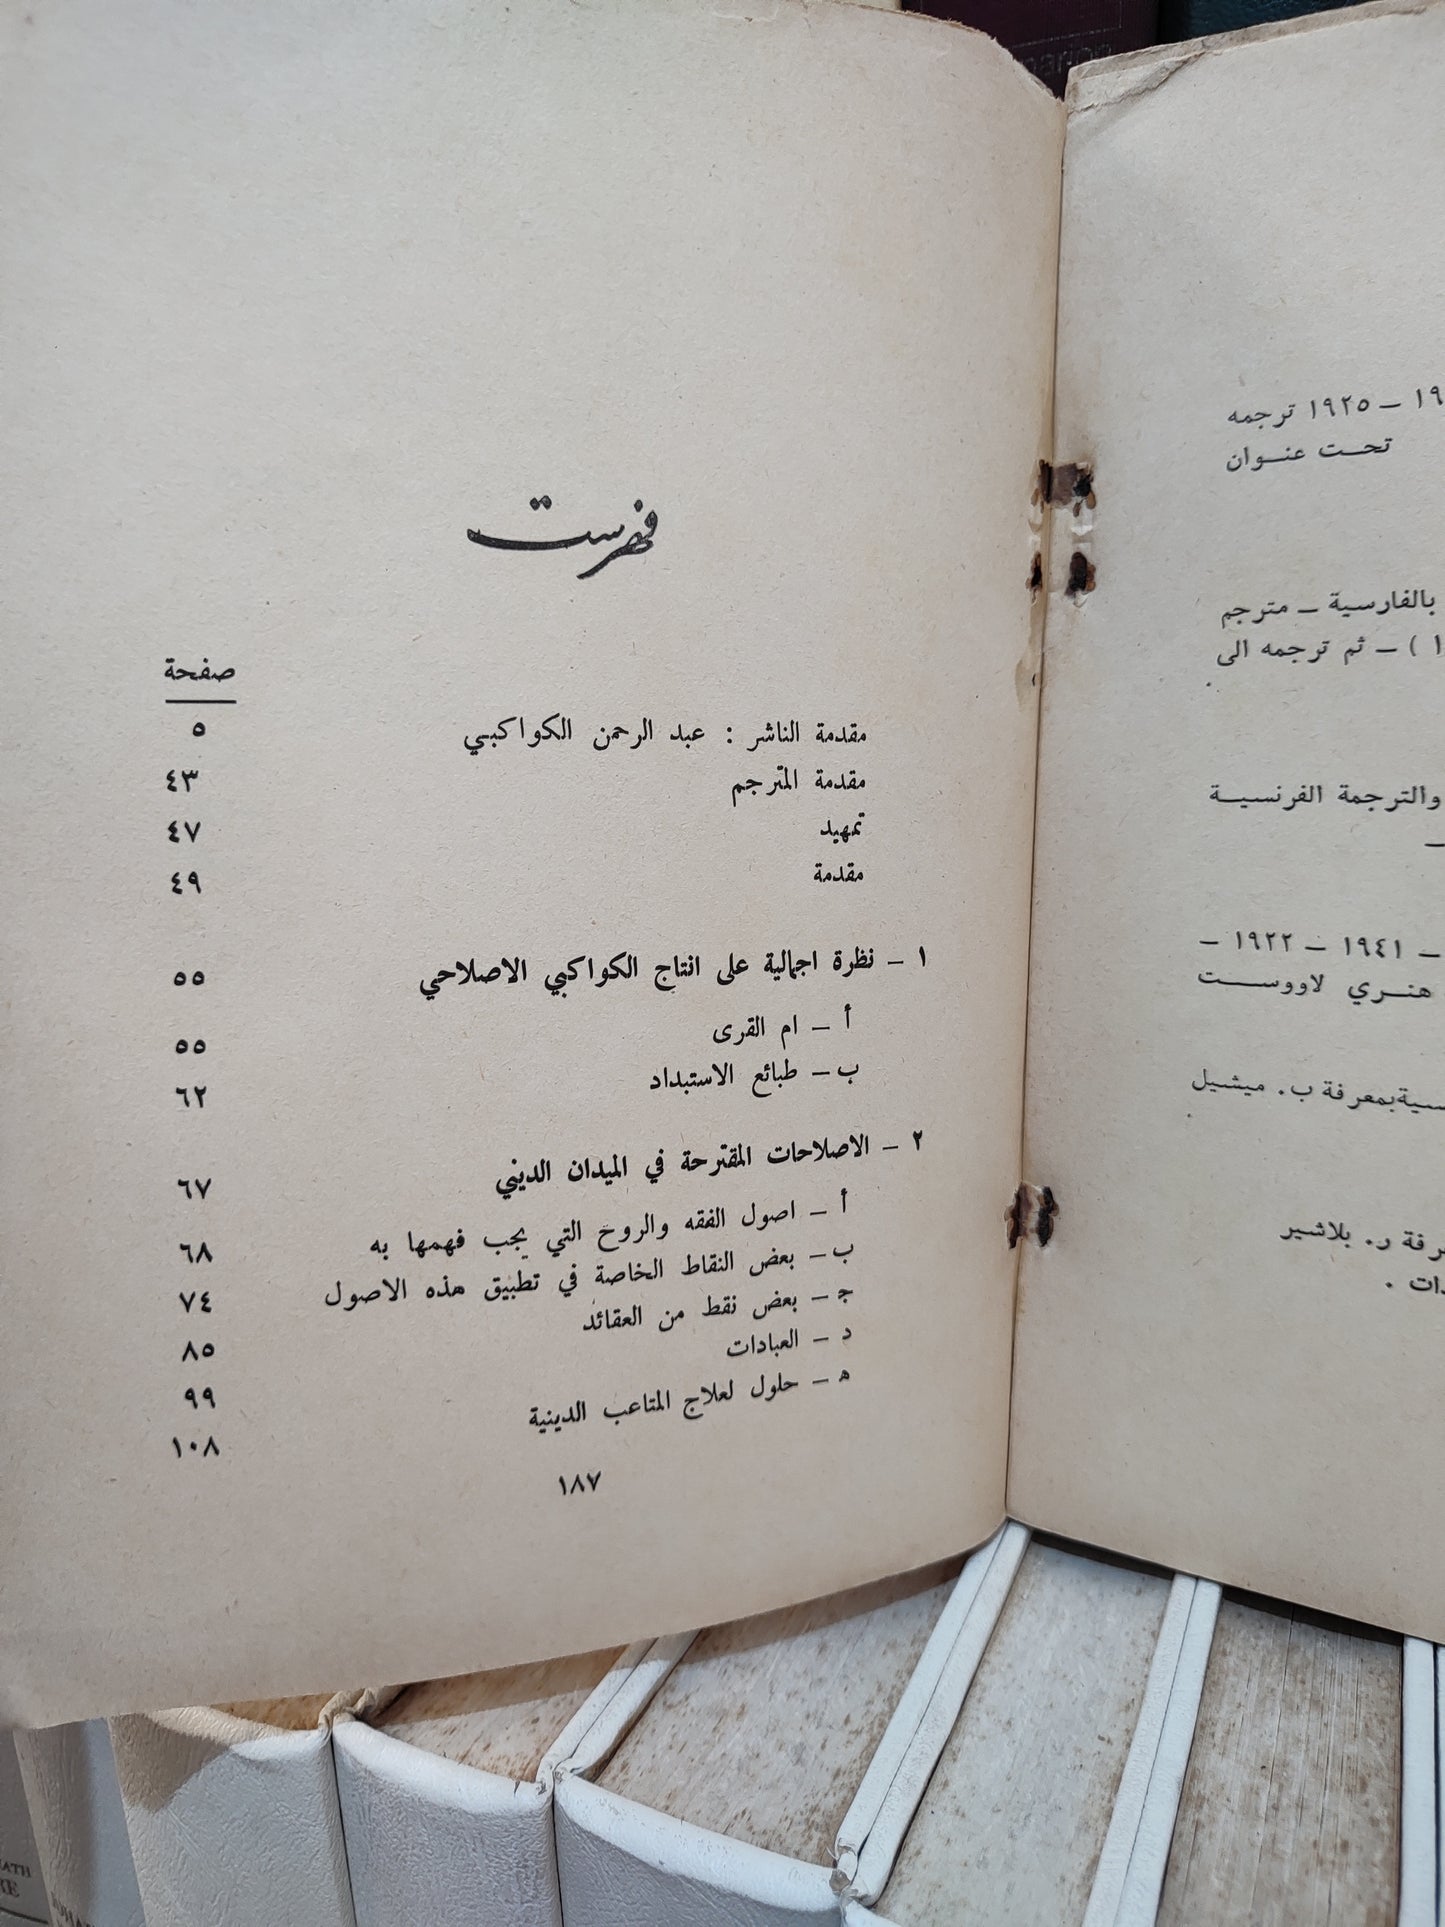 فهرست
صفحة
مقدمة الناشر : عبد الرحمن الكواكبي ٥
مقدمة المترجم ٤٣
تمهيد ٤٧
مقدمة ٤٩
١ – نظرة اجمالية على انتاج الكواكبي الاصلاحي ٥٥
أ – ام القرى ٥٥
ب – طبائع الاستبداد ٦٢
٢ – الاصلاحات المقترحة في الميدان الديني ٦٧
أ – اصول الفقه والروح التي يجب فهمها به ٦٨
ب – بعض النقاط الخاصة في تطبيق هذه الاصول ٧٤
ج – بعض نقط من العقائد ٨٥
د – العبادات ٩٩
ه – حلول لعلاج المتاعب الدينية ١٠٨
١٨٧
– ١٩٢٥ ترجمه
تحت عنوان
بالفارسية – مترجم
) – ثم ترجمه الى
والترجمة الفرنسية
–
– ١٩٤١ – ١٩٢٢ –
هنري لاووست
بمعرفة ب. ميشيل
ر. بلاشير